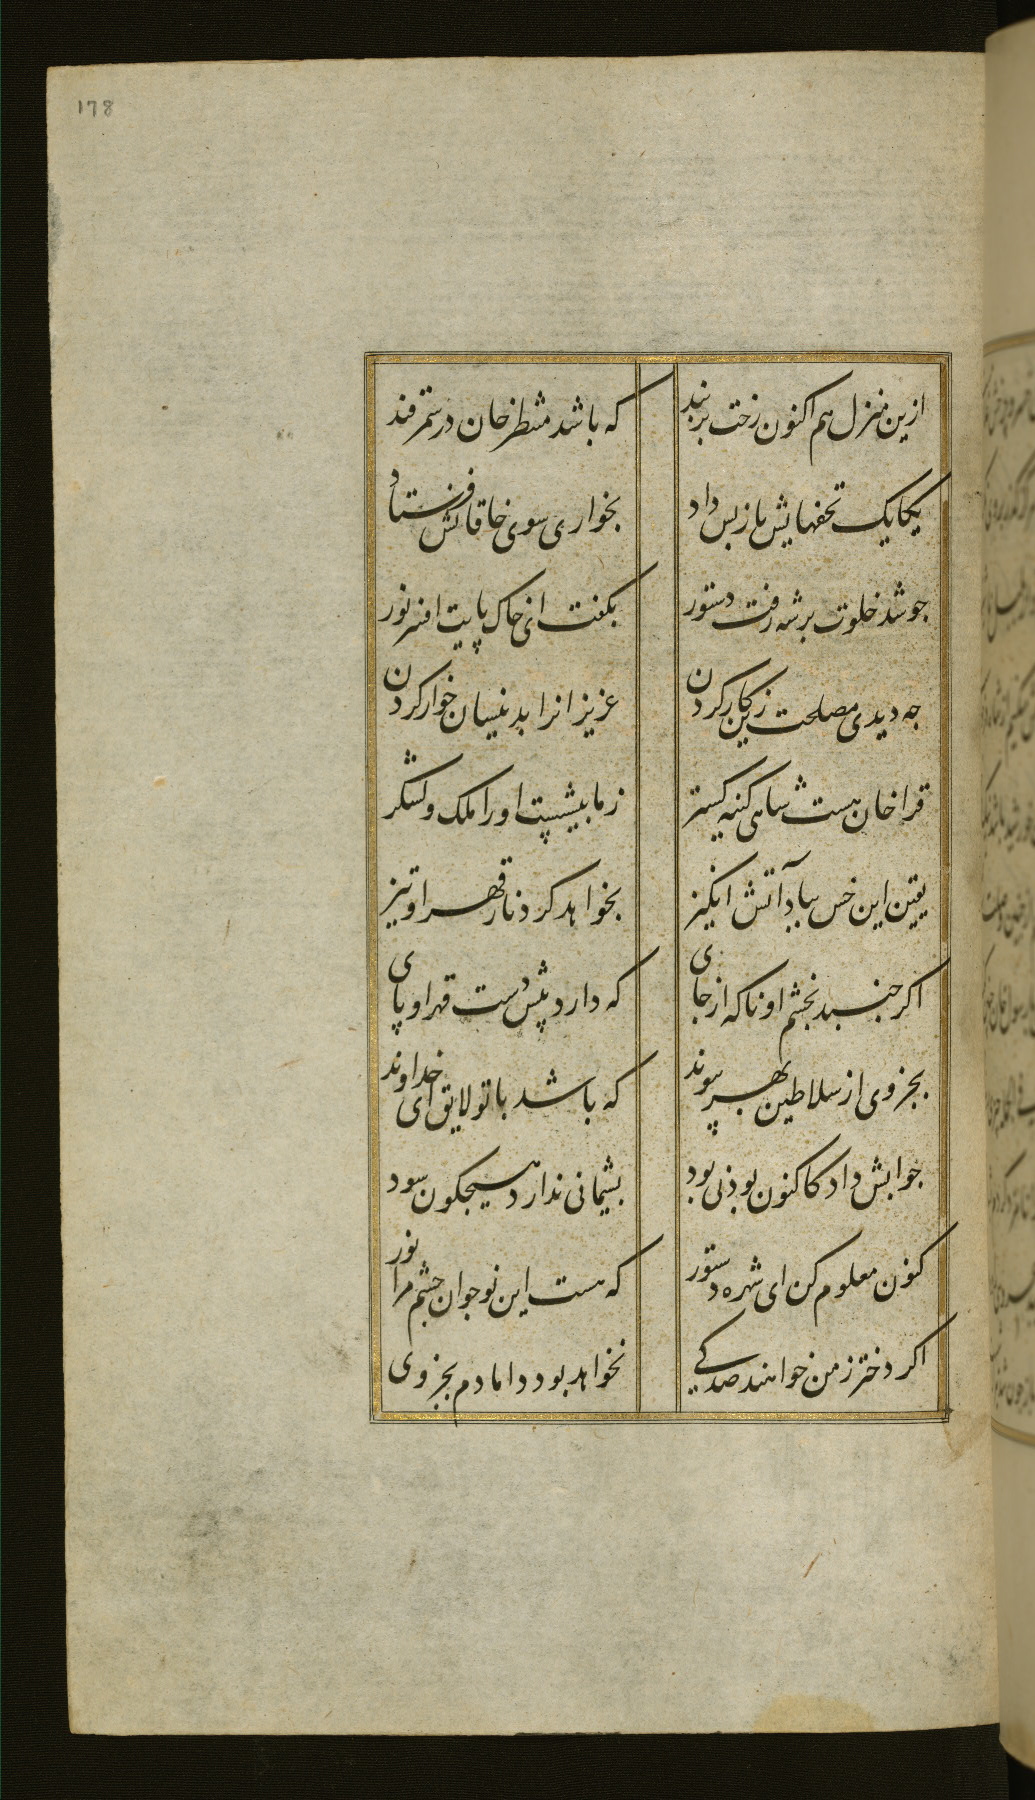 178
ازین منزل هم اکنون رخت بربند که باشد منتظر خان در سمرقند
یکایک تحفهایش باز پس داد بخواری سوی خاقانش فرستاد
جو شد خلوت بر شه رفت دستور بکفت ای خاک پایت افسر نور
جه دیدی مصلحت زین کار کردن عزیز انرا بدینسان خوار کردن
قراخان هست شاهی کینه کستر زما بیشست اورا ملک و لشکر
یقین این خس بباد آتش انکیز بخواهد کرد نار قهر او تیز
اکر جنبد بخشم او ناکه از جای که دارد پیش دست قهر او پای
بجز وی از سلاطین بهر پیوند که باشد با تو لایق ای خداوند
جوابش داد کاکنون بودنی بود بشیمانی ندارد هیجکون سود
کنون معلوم کن ای شهره دستور که هست این نوجوان جشم مرا نور
اکر دختر ز من خواهند صد کی نخواهد بود دامادم بجز وی